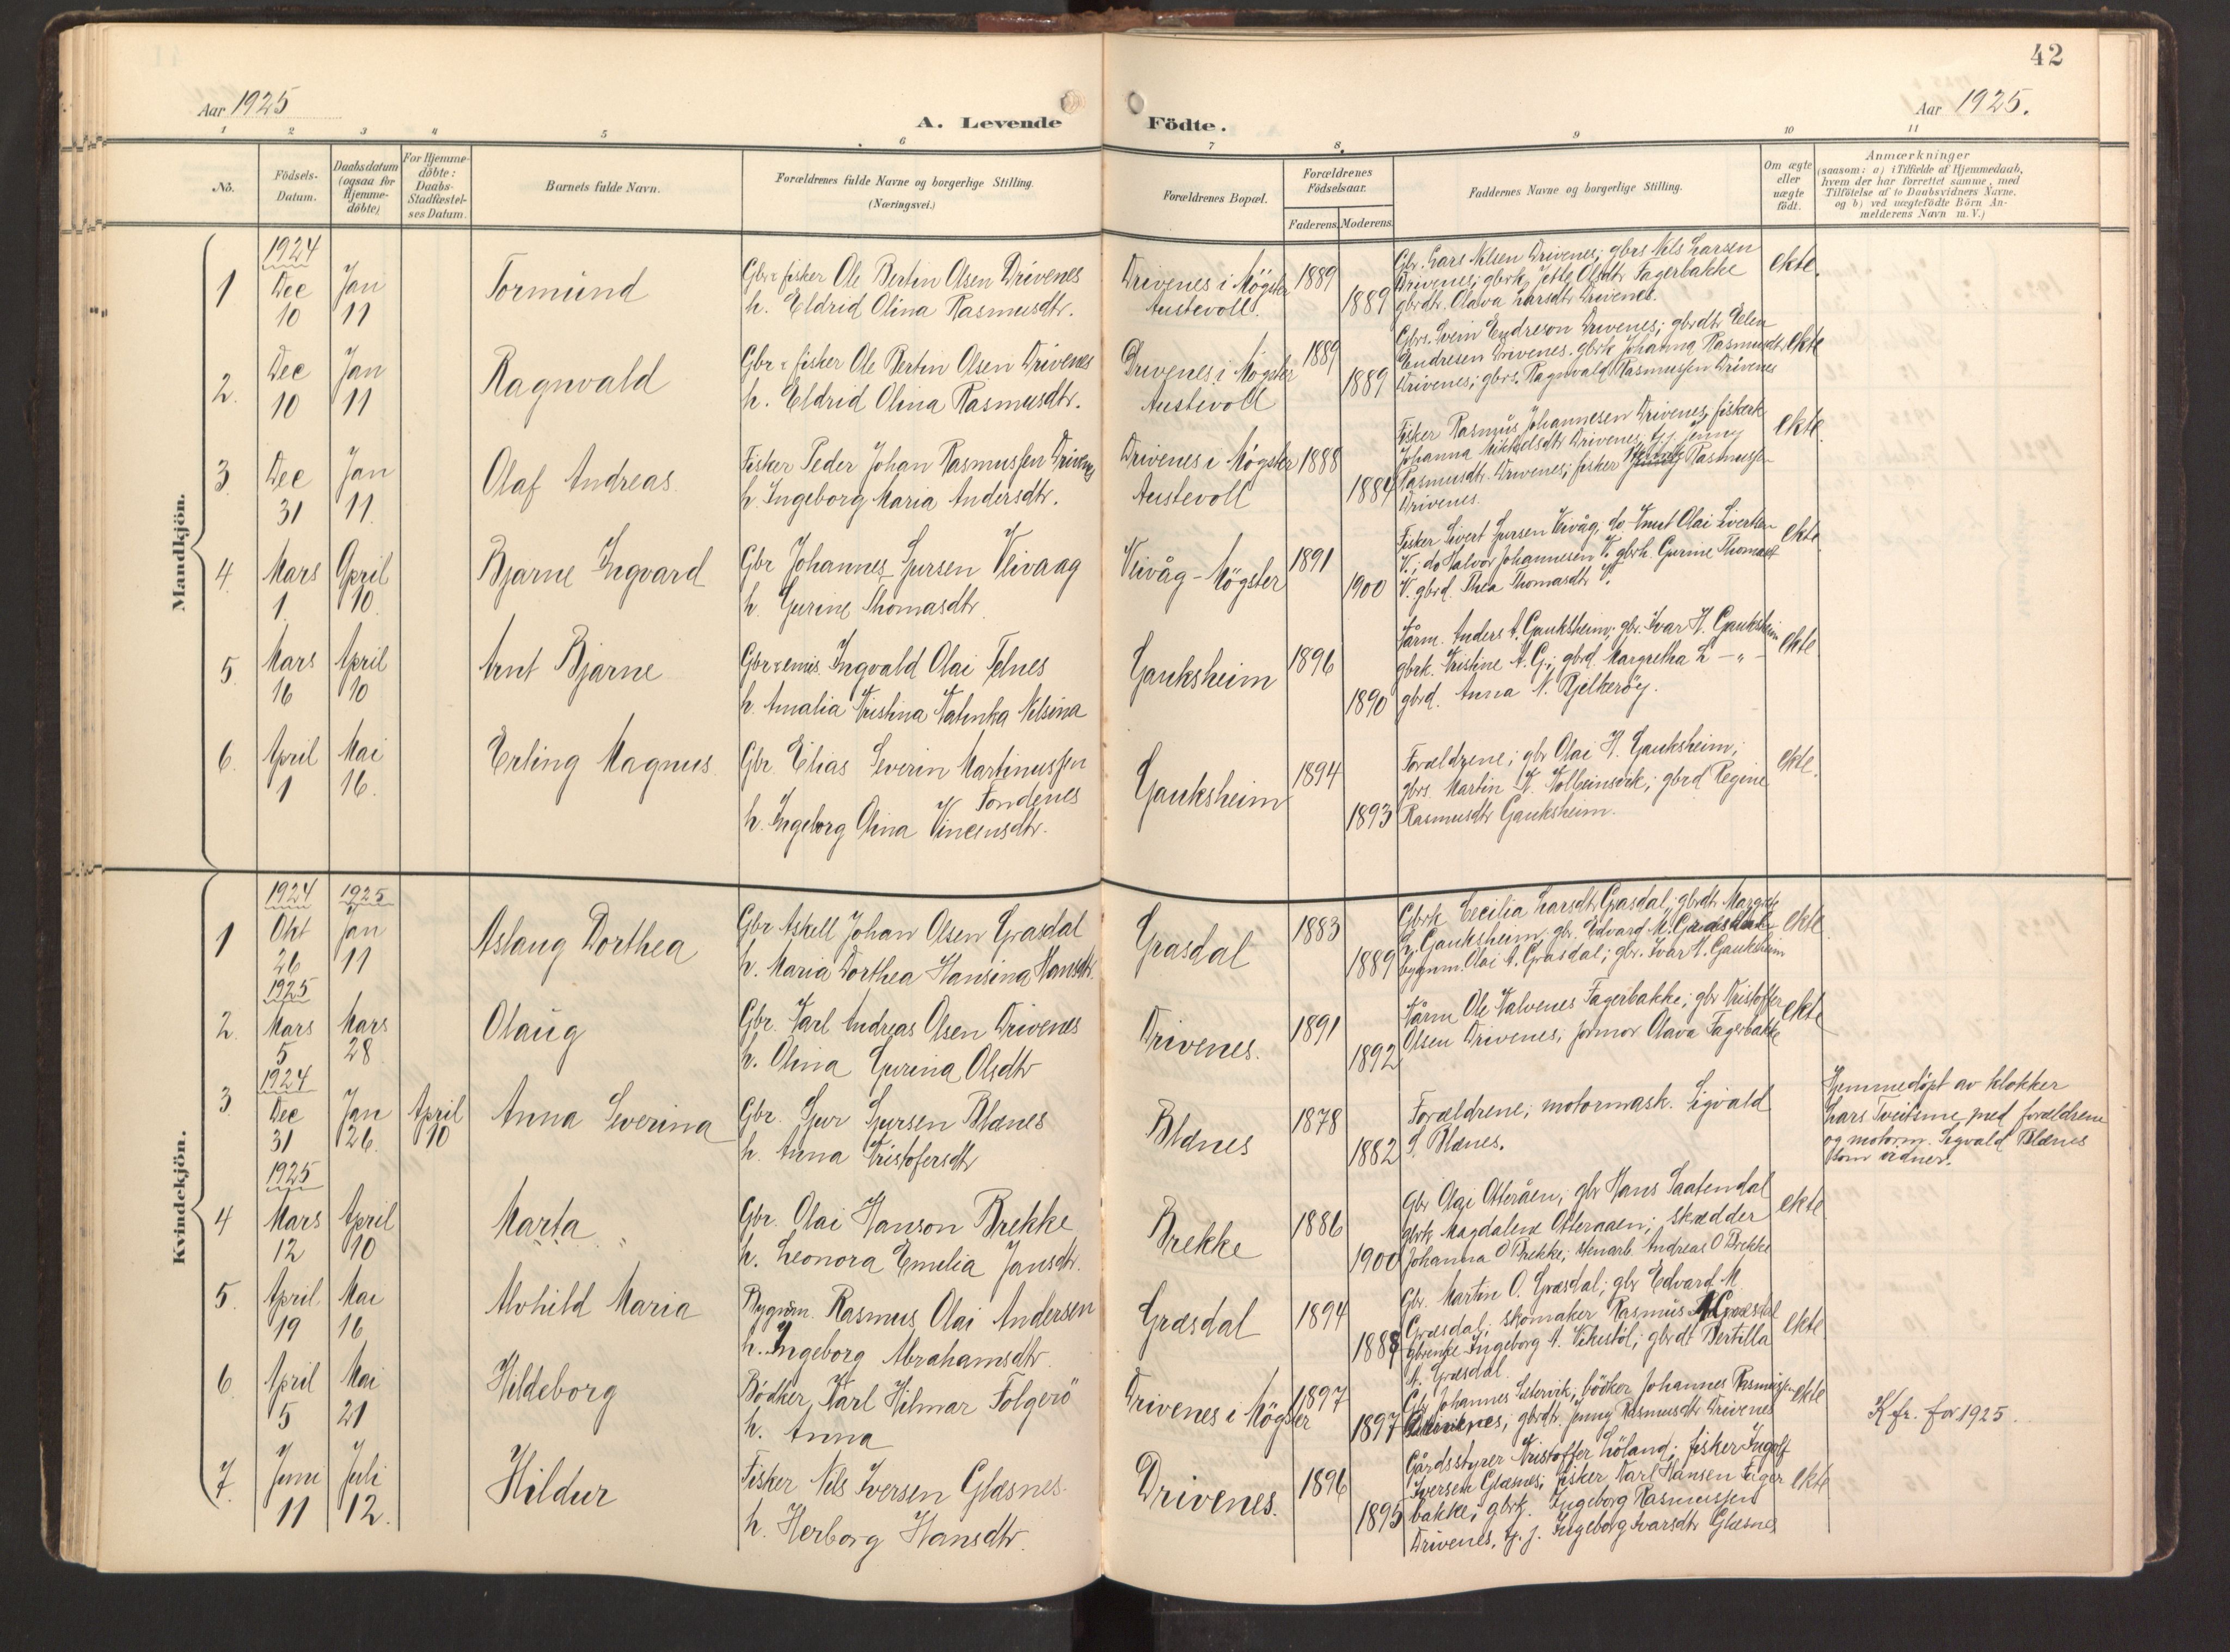 42
Aar 1925
Aar 1925.
A. Levende Födte.
1 2 3 4 5 6 7 8. 9 10 11
No.
Födsels-
Datum.
Daabsdatum
(ogsaa for
Hjemme-
döbte)
For Hjemme-
döbte:
Daabs-
Stadfæstel-
ses Datum.
Barnets fulde Navn.
Forældrenes fulde Navne og borgerlige Stilling.
(Næringsvei.)
Forældrenes Bopæl.
Forældrenes
Födselsaar.
Faderens.
Moderens.
Faddernes Navne og borgerlige Stilling.
Om ægte
eller
uægte
födt.
Anmærkninger
(saasom: a) i Tilfælde af Hjemmedaab,
hvem der har forrettet samme, med
Tilföielse af to Daabsvidners Navne,
og b) ved uægtefödte Börn An-
melderens Navn m. V.)
Mandkjön.
1
1924
Dec
10
Jan
11
Tormund
Gbr & fisker Ole Bertin Olsen Drivenes
h. Eldrid Olina Rasmusdtr.
Drivenes i Mögster
Austevoll.
1889
1889
Gbr. Lars Nilsen Drivenes; gbrs Nils Larsen
Drivenes; gbrk Jette Olsdtr Fagerbakke
gbrdtr. Olava Larsdtr Drivenes.
ekte.
2.
Dec
10
Jan
11
Ragnvald
Gbr & fisker Ole Bertin Olsen Drivenes
h. Eldrid Olina Rasmusdtr.
Drivenes i Mögster
Austevoll
1889
1889
Gbrs. Svein Endreson Drivenes; gbrdtr Elen
Endresen Drivenes. gbrk Johanna Rasmusdtr
Drivenes; gbrs. Ragnvald Rasmussen Drivenes
ekte
3
Dec
31
Jan
11.
Olaf Andreas.
Fisker Peder Johan Rasmussen Drivenes
h. Ingeborg Maria Andersdtr.
Drivenes i Mögster
Austevoll
1888
1884
Fisker Rasmus Johannesen Drivenes, fiskerk
Johanna Mikkelsdtr Drivenes, tj. Jenny
Rasmusdtr. Drivenes; fisker Rasmussen
Drivenes.
ekte.
4.
Mars
1.
April
10.
Bjarne Ingvard
Gbr Johannes Sjursen Veivaag
h. Gurine Thomasdtr.
Veivåg - Mögster
1891
1900
Fisker Sivert Sjursen Veivåg; do Knut Olai Sivertsen
V.; do Halvor Johannesen V. gbrk. Gurine Thomasdt
V. gbrd. Thea Thomasdtr V.
ekte.
5.
Mars
16
April
10
Arnt Bjarne
Gbr & emis. Ingvald Olai Folnes
h. Amalia Kristina Katinka Nilsina
Gauksheim
1896
1890
Fårm. Anders A. Gauksheim; gbr. Ivar H. Gauksheim
gbrk. Kristine A. G.; gbrd. Margretha L - " -
gbrd. Anna N. Gjelkeröy.
ekte
6.
April
1
Mai
16.
Erling Magnus.
Gbr Elias Severin Martinussen
Fondenes
h. Ingeborg Olina Vincensdtr.
Gauksheim
1894
1893
Forældrene; gbr Olai H. Gauksheim;
gbrs. Martin K. Kolbeinsvik; gbrd Regine
Rasmusdtr Gauksheim.
ekte.
Kvindekjön.
1
1924
Okt
26
1925
Jan
11
Aslaug Dorthea
Gbr Askell Johan Olsen Grasdal
h. Maria Dorthea Hansina Hansdtr.
Grasdal
1883
1889
Gbrk Cecilia Larsdtr Grasdal, gbrdt. Margrete
L. Gauksheim; gbr. Edvard M. Grasdal
bygnm. Olai A. Grasdal; gbr. Ivar H. Gauksheim
ekte.
2.
1925
Mars
5
Mars
28
Olaug
Gbr. Karl Andreas Olsen Drivenes
h. Olina Gurina Olsdtr
Drivenes.
1891
1892
Fårm Ole Kalvenes Fagerbakke; gbr Kristoffer
Olsen Drivenes, formor Olava Fagerbakke
ekte
3
1924
Dec
31
Jan
26.
April
10
Anna Severina
Gbr. Sjur Sjursen Blænes
h. Anna Kristofersdtr
Blænes
1878
1882
Forældrene; motormask. Sigvald
S. Blænes.
Hjemmedöpt av klokker
Lars Tveitsme med forældrene
og motorm. Sigvald Blænes
som vidner.
4
1925
Mars
12
April
10
Marta
Gbr. Olai Hanson Brekke
h. Leonora Emelia Jansdtr.
Brekke
1886
1900
Gbr Olai Otteråen; gbr Hans Saatendal
gbrk Magdalene Otteraaen; skrædder
Johanna O Brekke; stenarb. Andreas O Brekke
ekte.
5.
April
19
Mai
16
Alvhild Maria
Bygnm. Rasmus Olai Andersen
h. Ingeborg Abrahamsdtr.
Græsdal
1894
1888
Gbr. Martin O. Græsdal; gbr Edvard M.
Græsdal; skomaker Rasmus A Græsdal
gbrenke Ingeborg A. Vikestöl; gbrdt Bertilla
A. Græsdal.
ekte
6
April
5
Mai
21
Hildeborg
Bödker Karl Hilmar Folgerö
h. Anna
Drivenes i Mögster
1897
1897
Gbr Johannes Sætervik; bödker Johannes Rasmussen
Drivenes; gbrdtr. Jenny Rasmusdtr Drivenes
ekte
K fr. for 1925.
7.
Juni
11
Juli
12.
Hildur
Fisker Nils Iversen Glæsnes.
h. Herborg Hansdtr.
Drivenes.
1896
1895
Gårdsstyrer Kristoffer Löland; fisker Ingolf
Iversen Glæsnes; fisker Karl Hansen Fager
bakke; gbrk. Ingeborg Rasmussen
Drivenes, tj. j. Ingeborg Ivarsdtr Glæsnes
ekte